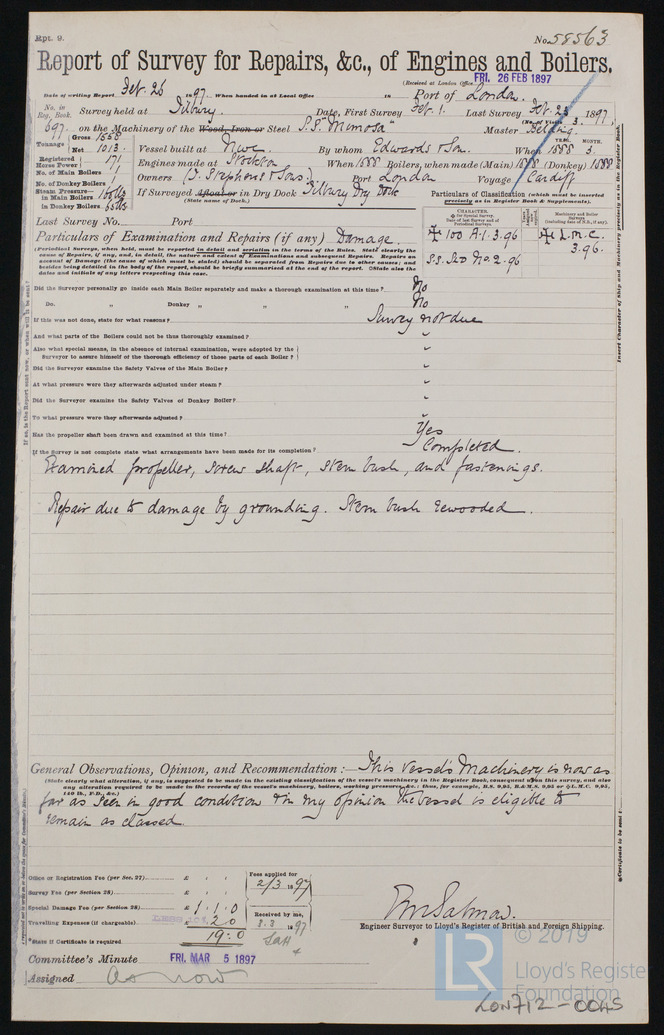 Rpt. 9.
No. 58563
Report of Survey for Repairs, &c., of Engines and Boilers.
(Received at London Office FRI. 26 FEB 1897
State of writing Report Feb. 26 1897 When handed in at Local Office 18 Port of London.
No. in Reg. Book. Survey held at Tilbury. Date, First Survey Feb. 1. Last Survey Feb. 23 1897
(No. of Visits 3.)
697 on the Machinery of the Wood, Iron or Steel S.S. Mimosa Master Belding.
Tonnage Gross 1558 Net 1013 Vessel built at Nwc. By whom Edwards & Son. When 1888 3.
YEAR. MONTH.
Registered Horse Power 171 Engines made at Stockton When 1888 Boilers, when made (Main) 1888 (Donkey) 1888
No. of Main Boilers 1 Owners (J. Stephens & Sons.) Port London Voyage Cardiff
No. of Donkey Boilers 1
Steam Pressure—
in Main Boilers
in Donkey Boilers
If Surveyed Afloat or in Dry Dock Tilbury Dry Dock
(State name of Dock.)
Particulars of Classification (which must be inserted precisely as in Register Book & Supplements).
Last Survey No. Port
CHARACTER.
Machinery and Boiler Surveys
✠ 100 A.1. 3.96
✠ L.M.C. 3.96.
S.S. Ldo No. 2. 96
Particulars of Examination and Repairs (if any) Damage.
(Periodical Surveys, when held, must be reported in detail and seriatim in the terms of the Rules. State clearly the
cause of Repairs, if any, and, in detail, the nature and extent of Examinations and subsequent Repairs. Repairs on
account of Damage (the cause of which must be stated) should be separated from Repairs due to other causes; and
besides being detailed in the body of the report, should be briefly summarised at the end of the report. State also the
dates and initials of any letters respecting this case.
Did the Surveyor personally go inside each Main Boiler separately and make a thorough examination at this time? No
Do. „ Donkey „ „ „ No
If this was not done, state for what reasons? Survey not due
And what parts of the Boilers could not be thoroughly examined? "
Also what special means, in the absence of internal examination, were adopted by the
Surveyor to assure himself of the thorough efficiency of those parts of each Boiler? "
Did the Surveyor examine the Safety Valves of the Main Boiler? "
At what pressure were they afterwards adjusted under steam? "
Did the Surveyor examine the Safety Valves of Donkey Boiler? "
To what pressure were they afterwards adjusted? "
Has the propeller shaft been drawn and examined at this time? Yes
If the Survey is not complete state what arrangements have been made for its completion? Completed.
Examined propeller, screw shaft, stern bush, and fastenings.
Repair due to damage by grounding. Stern bush rewooded.
General Observations, Opinion, and Recommendation :— This Vessel's Machinery is now as
(State clearly what alteration, if any, is suggested to be made in the existing classification of the vessel's machinery in the Register Book, consequent upon this survey, and also
any alteration required to be made in the records of the vessel's machinery, boilers, working pressure, &c.: thus, for example, B.S. 9,95, B.&M.S. 9,95 or ✠L.M.C. 9,95,
140 lb., F.D., &c.)
far as seen in good condition & in my opinion the vessel is eligible to
remain as classed.
Office or Registration Fee (per Sec. 27) £ : :
Fees applied for
2/3 1897
Survey Fee (per Section 28) £ : :
Special Damage Fee (per Section 28) £ 1 : 1 : 0
Received by me,
3.3 1897
Travelling Expenses (if chargeable) £ 2 0
19:0
State if Certificate is required
Engineer Surveyor to Lloyd's Register of British and Foreign Shipping.
Committee's Minute FRI. MAR 5 1897
Assigned As now
Insert Character of Ship and Machinery precisely as in the Register Book.
Certificate to be sent to
© 2019
LR
Lloyd's Register
Foundation
LON712-0045